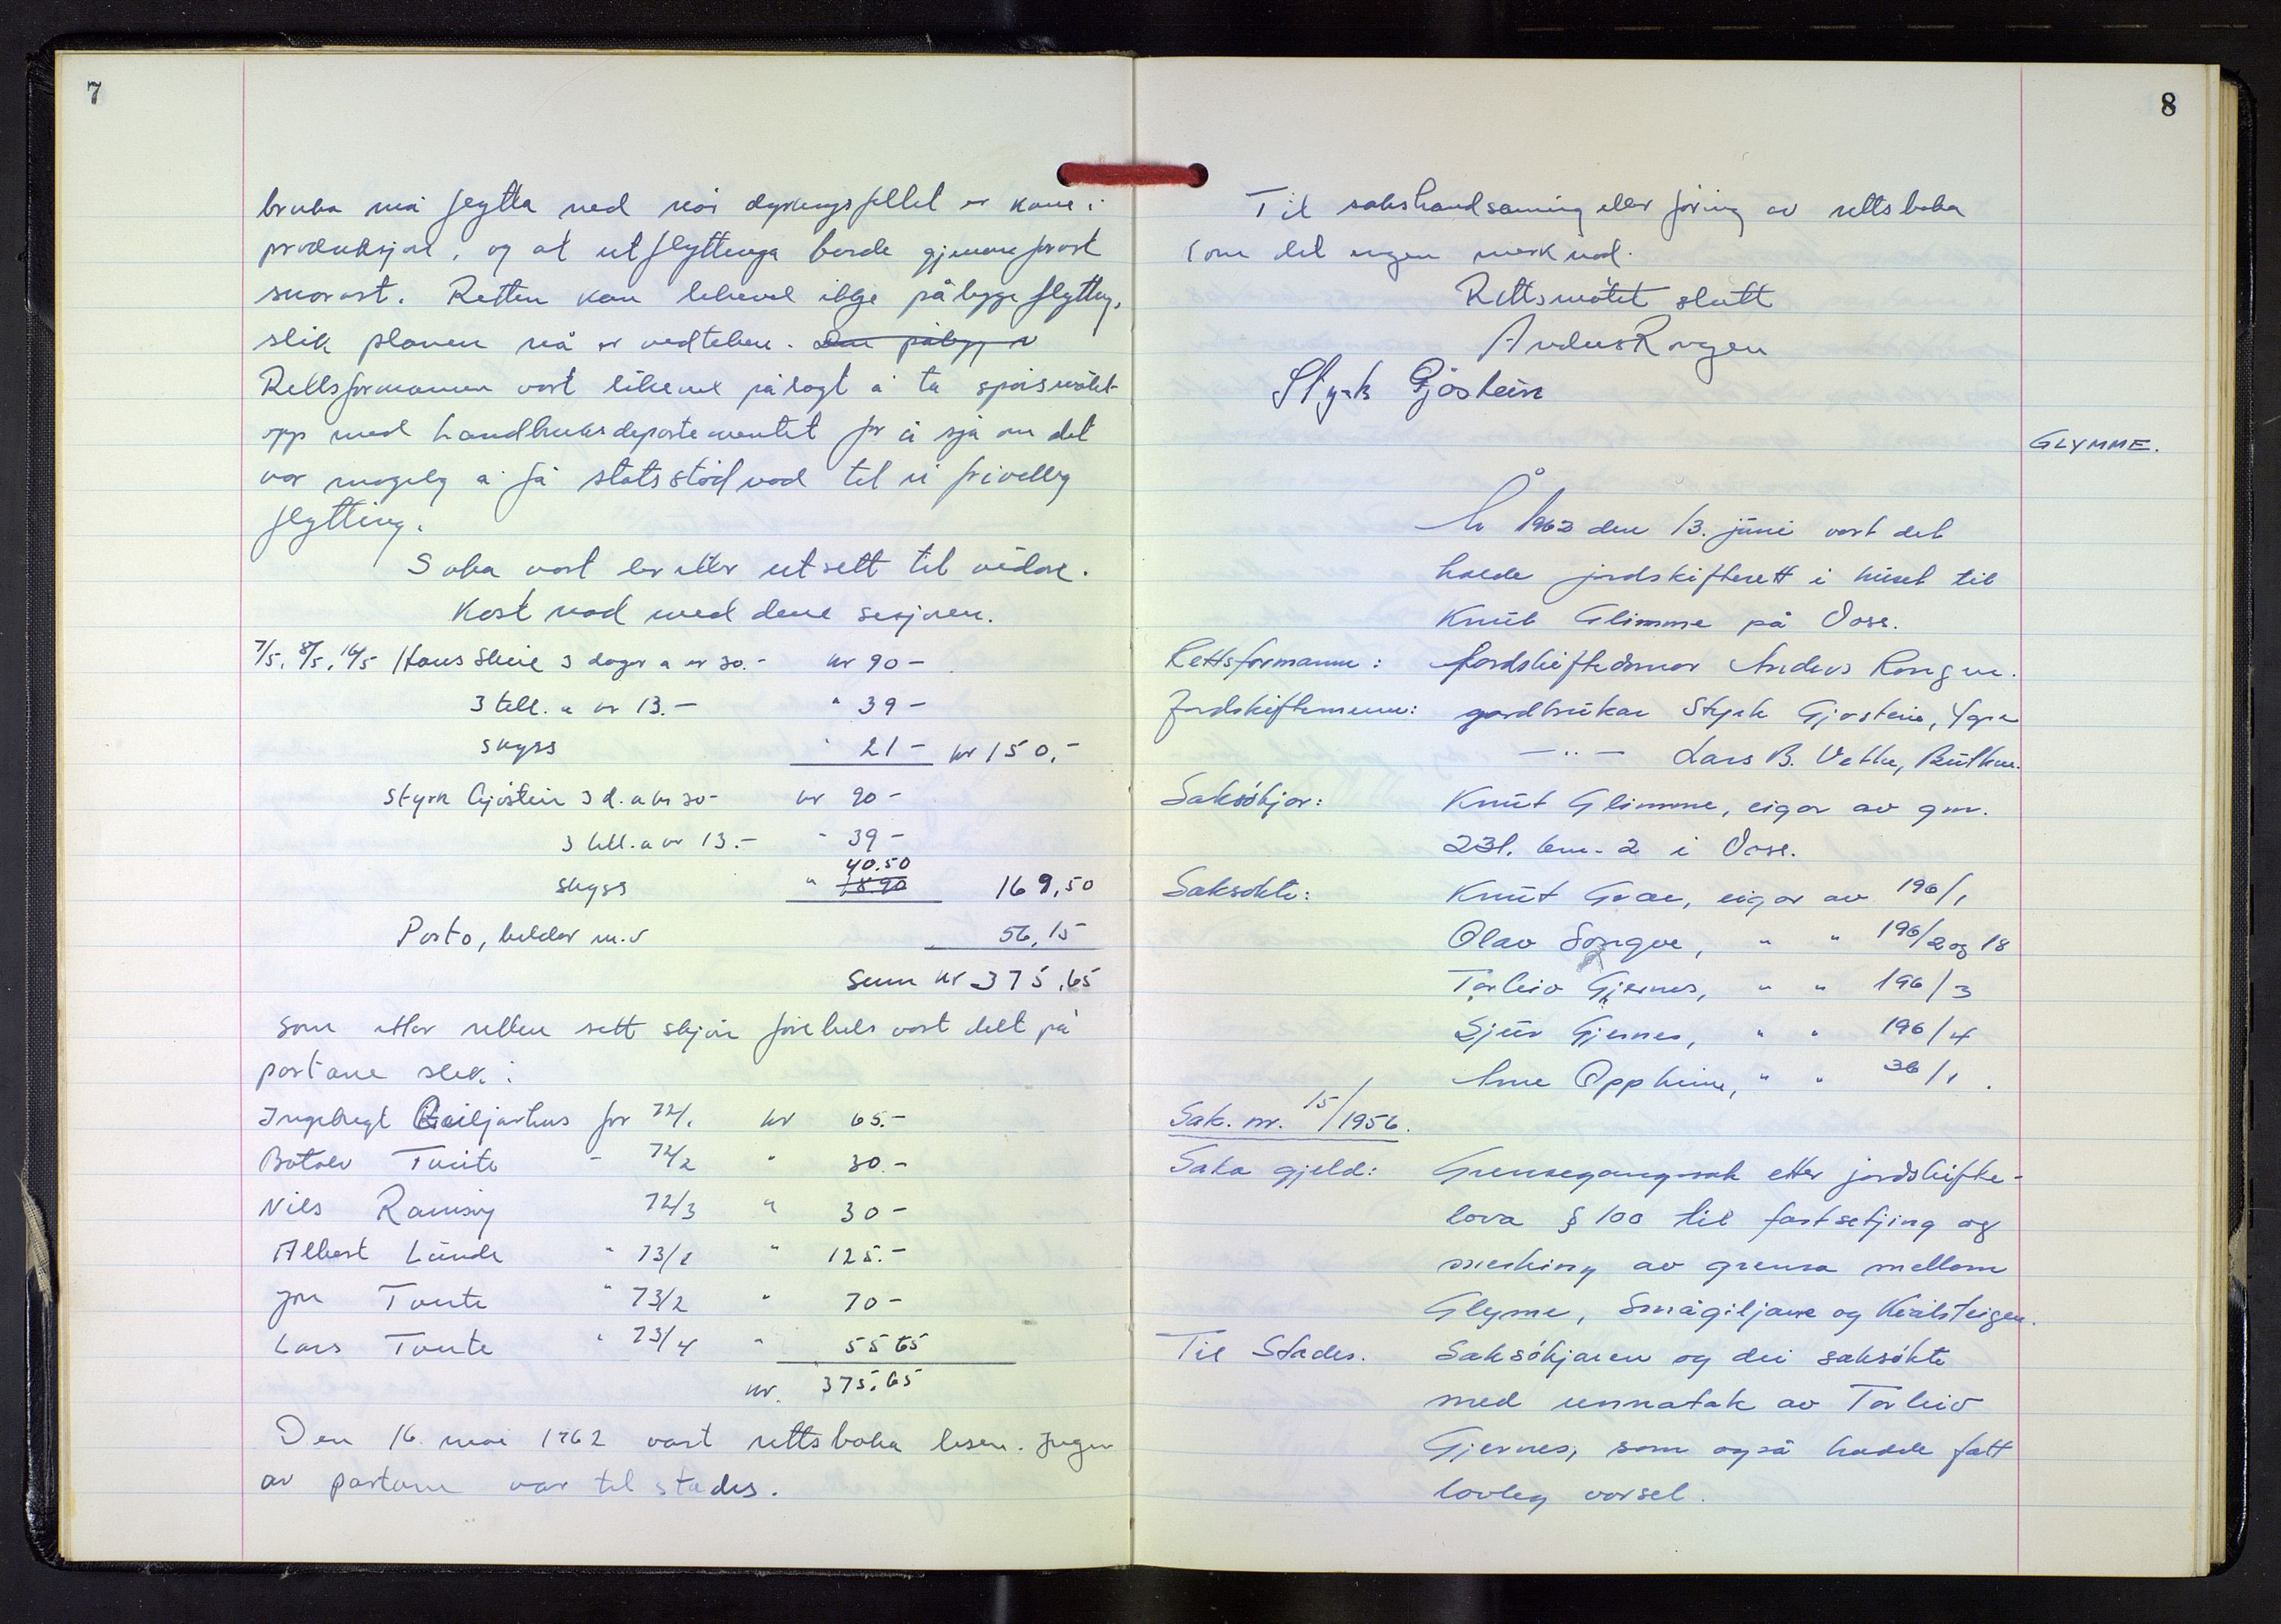 7
bruka må flytta ned når dyrkingsfeltet er kome i
produksjon, og at utflyttinga burde gjennomførast
snarast. Retten kan likevel ikkje pålegge flytting,
slik planen nå er vedteken. Den pålegg
Rettsformannen vart likevel pålagt å ta spørsmålet
opp med Landbruksdepartementet for å sjå om det
var mogeleg å få statsstönad til ei frivillig
flytting.
Saka vart deretter utsett til vidare.
Kostnad med denne sesjonen.
7/5, 8/5, 16/5 Hans Skeie 3 dagar a kr 30.- kr 90 -
3 till. a kr 13.- " 39 -
skyss " 21 - kr 150.-
Styrk Gjøstein 3 d. a kr 30- kr 90 -
3 till. a kr 13.- " 39 -
40.50
skyss " 18.90 169,50
Porto, bilder m.v 56,15
Sum kr 375,65
som etter retten sett skjön førebels vart delt på
partane slik:
Ingebrigt Geiljarhus for 72/1 kr 65.-
Botolv Tvinte - 72/2 " 30.-
Nils Ramsøy 72/3 " 30 -
Albert Lunde " 73/1 " 125.-
Jon Tvinte " 73/2 " 70 -
Lars Tvinte " 73/4 " 55 65
kr. 375.65
Den 16. mai 1962 vart rettsboka lesen. Ingen
av partane var til stades.
8
Til sakshandsaming eller føring av rettsboka
kom det ingen merknad.
Rettsmøtet slutt
Anders Rongen
Styrk Gjöstein
GLYMME.
År 1962 den 13. juni vart det
halde jordskifterett i huset til
Knut Glimme på Voss.
Rettsformann: Jordskiftedomar Anders Rongen.
Jordskiftemenn: gardbrukar Styrk Gjøstein,
— " — Lars B. Vethe,
Saksökjar: Knut Glimme, eigar av gnr.
231. bnr. 2 i Voss.
Saksøkte: Knut Grae, eigar av 196/1
Olav Songve, " " 196/2 og 18
Torleiv Gjernes, " " 196/3
Sjur Gjernes, " " 196/4
Arne Oppheim, " " 36/1.
Sak. nr. 15/1956.
Saka gjeld: Grensegangssak etter jordskifte-
lova § 100 til fastsetjing og
merking av grensa mellom
Glyme, Smågiljane og Kvilsteigen.
Til Stades. Saksökjaren og dei saksökte
med unnatak av Torleiv
Gjernes, som også hadde fått
lovleg varsel.